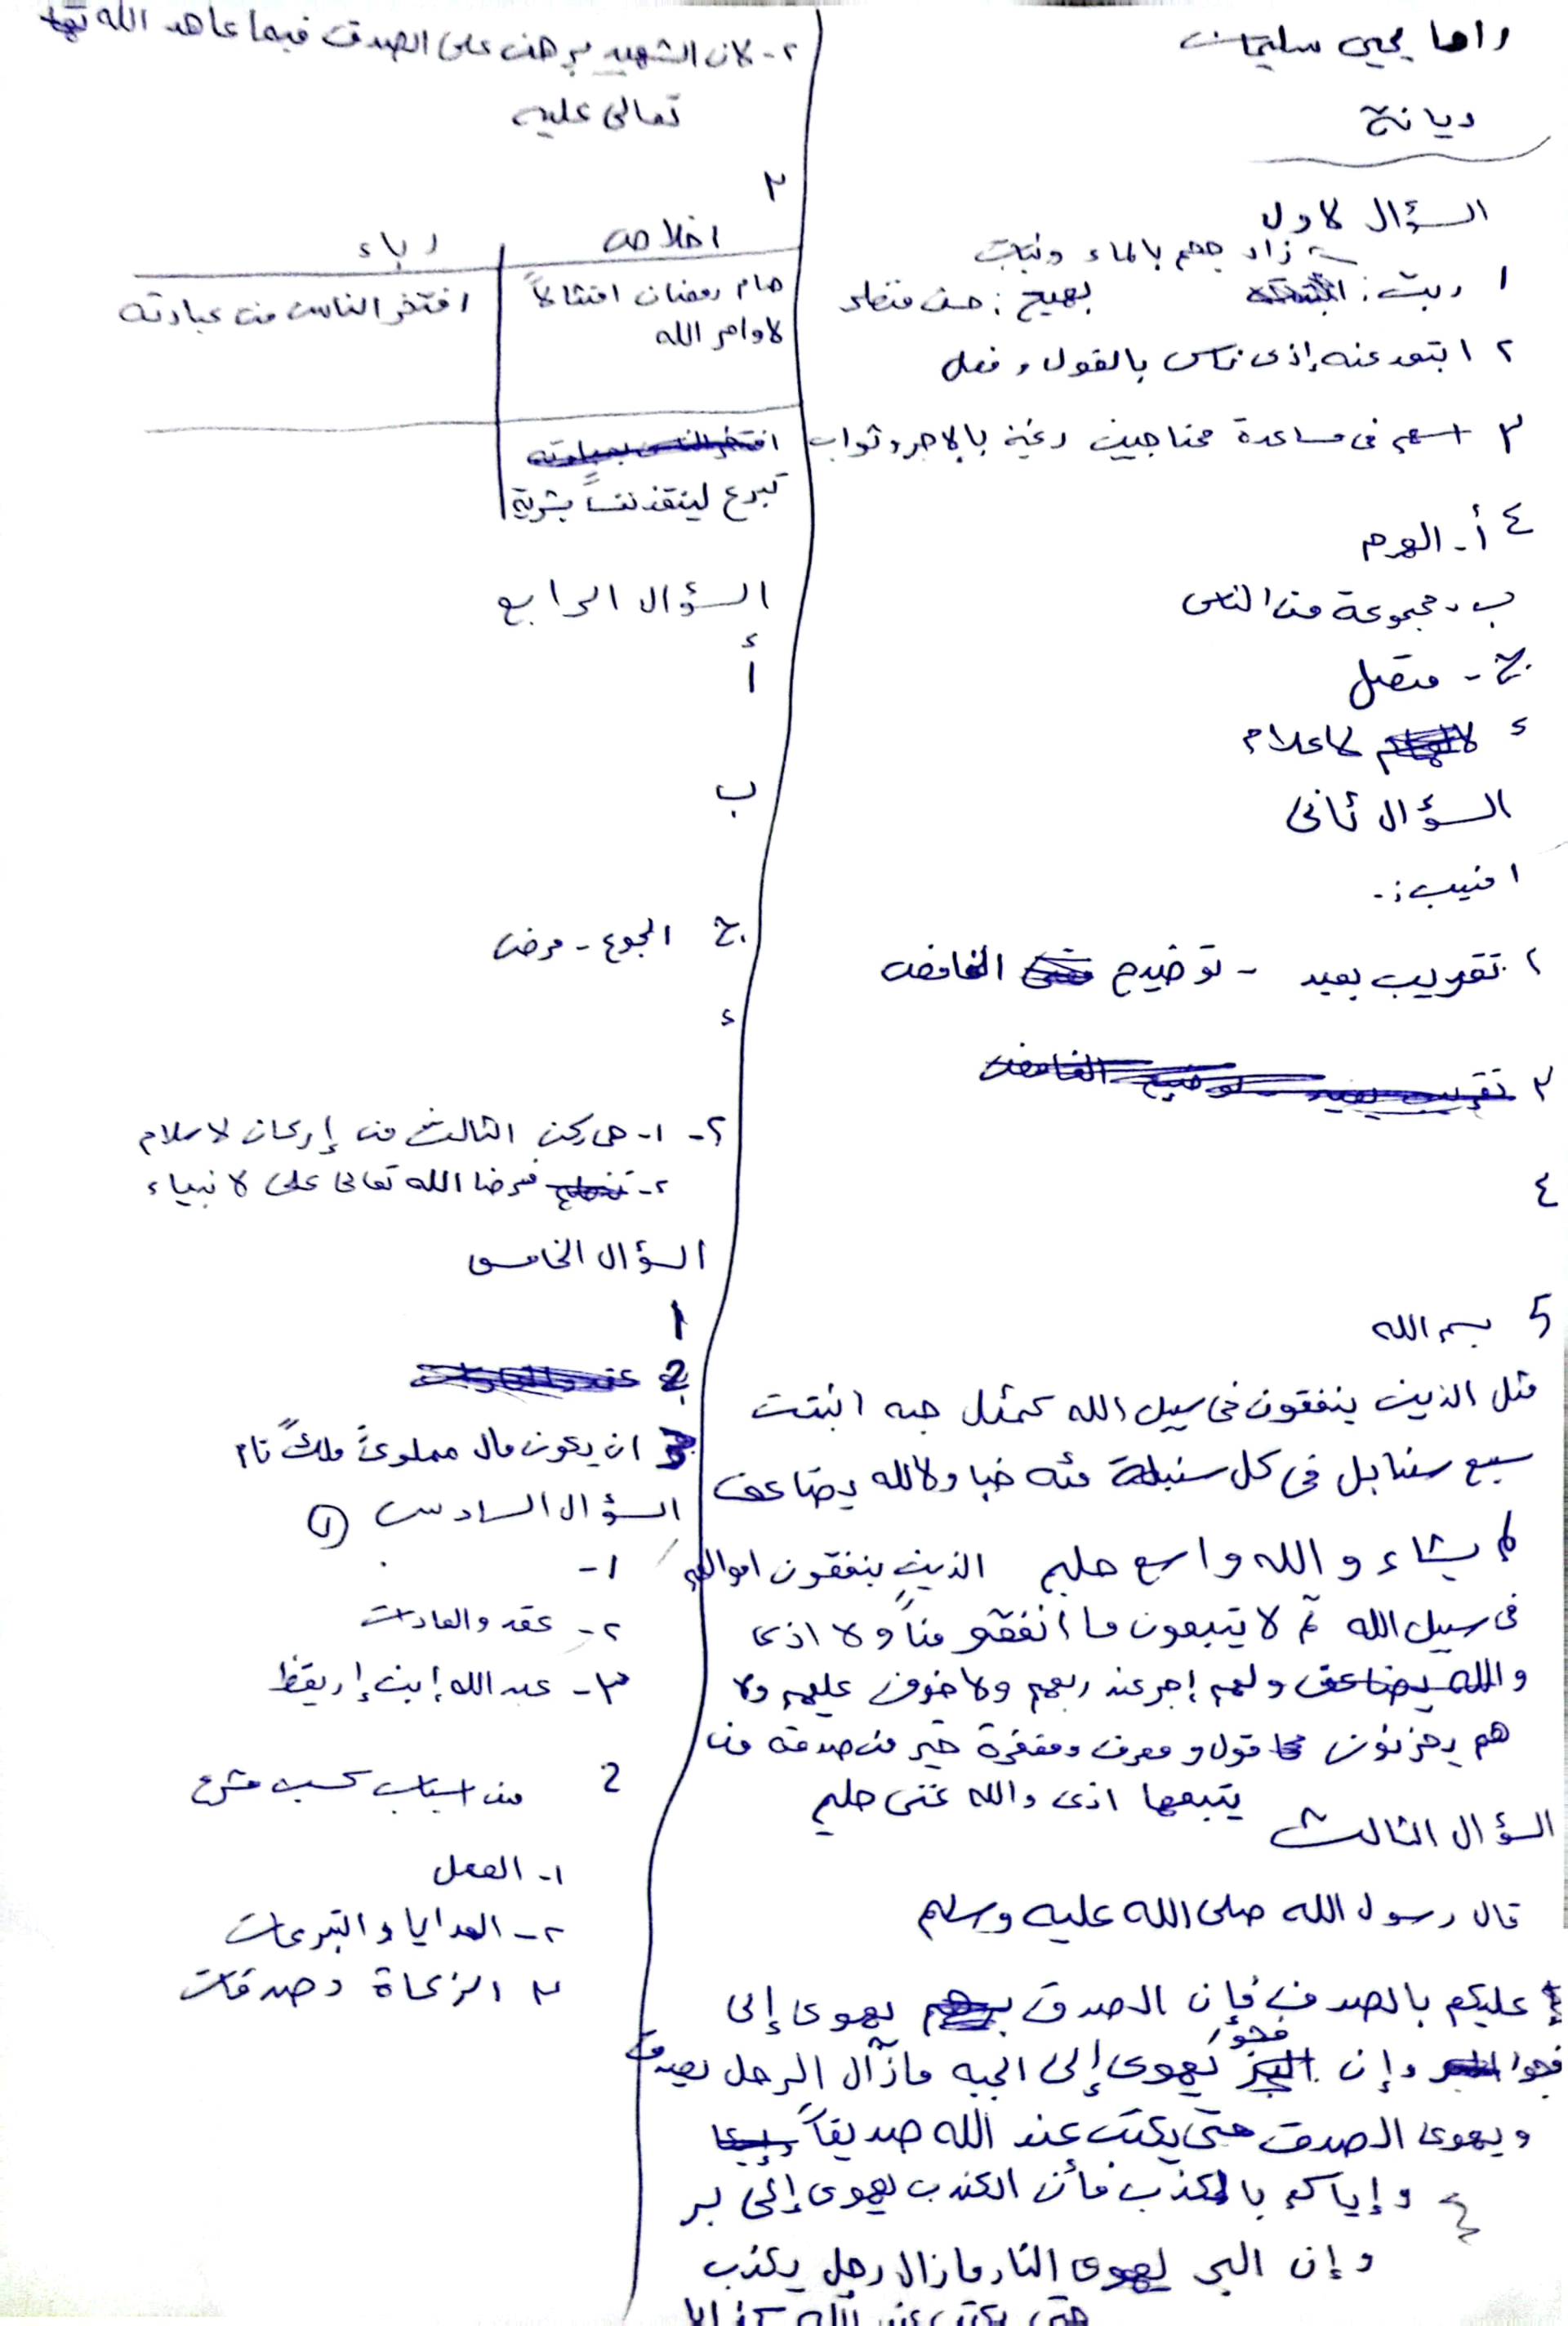 راما يحيى سليمان
ديانة
السؤال لاول
زاد حجم بالماء ونبات
١ ربت: بهيج: حسن منظر
٢ ابتعد عنه إذى ناس بالقول و فعل
٣ اسهم في مساعدة محتاجين رغبة بالاجر وثواب
٤ أ- الهرم
ب- مجموعة من الناس
ج- متصل
د لاعلام
السؤال ثاني
١ منيب:-
٢ تقريب بعيد - توضيح الغامض
٣ تقريب بعيد - توضيح الغامض
٤
5 بسم الله
مثل الذين ينفقون في سبيل الله كمثل حبه انبتت
سبع سنابل في كل سنبلة مئه حبا ولالله يضاعف
لم يشاء والله واسع حليم الذين ينفقون اموالهم
في سبيل الله ثم لا يتبعون ما أنفقو مناً ولا اذى
والله يضاعف ولهم إجر عند ربهم ولا خوف عليهم ولا
هم يحزنون قول و معرف ومغفرة خير من صدقه من
يتبعها اذى والله غني حليم
السؤال الثالث
قال رسول الله صلى الله عليه وسلم
عليكم بالصدق فإن الصدق يهوى إلى
فجوا وإن فجور يهوى إلى الجنه مازآل الرجل يصدق
ويهوى الصدق حتى يكتب عند الله صديقاً
وإياكم بالكذب فأن الكذب يهوى إلى بر
وإن البر يهوى النار مازال رجل يكذب
حتى يكتب عند الله كذابا
٢- لان الشهيد برهن على الصدق فيما عاهد الله
تعالى عليه
٣
اخلاص رياء
صام رمضان امتثالاً افتخر الناس من عبادته
لاوامر الله
افتخر الناس بعبادته
تبرع لينقذ نفساً بشرية
السؤال الرابع
أ
ب
ج الجوع - مرض
د
٢- ١- هي ركن الثالث من إركان لاسلام
٢- فرضا الله تعالى على لانبياء
السؤال الخامس
1
2
3 ان يكون مال مملوئً ملكً تام
السؤال السادس (١)
١-
٢- عقد والعادات
٣- عبد الله إبن إريقظ
2 من اسباب كسب مشرع
١- العمل
٢- الهدايا والتبرعات
٣ الزكاة وصدقات